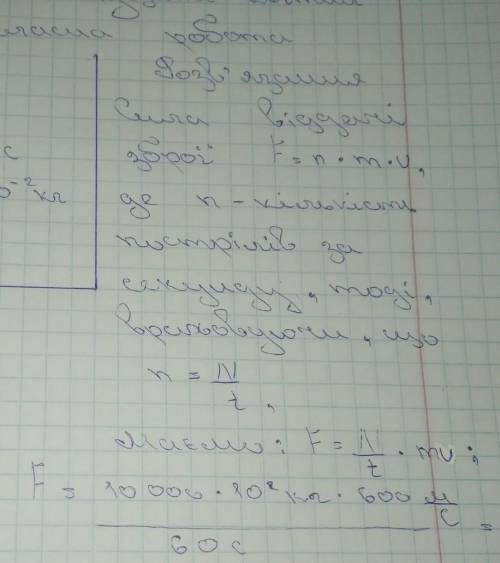 робота
Розв'язання
Сила віддачі
с
зброї F = n · m · v,
10⁻² кг
де n – кількість
пострілів за
секунду, тоді,
враховуючи, що
n = N/t,
Маємо: F = N/t · mv;
F = 10 000 · 10² кг · 600 м/с / 60 с =